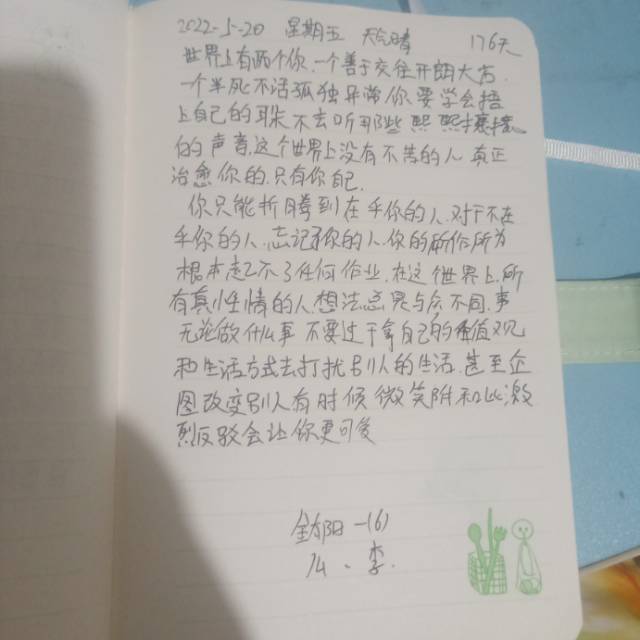 2022-5-20 星期五 天气晴 176天
世界上有两个你,一个善于交往开朗大方,
一个半死不活孤独异常你要学会捂
上自己的耳朵不去听那些熙熙攘攘
的声音,这个世界上没有不苦的人,真正
治愈你的,只有你自己,
你只能折腾到在乎你的人,对于不在
乎你的人,忘记了你的人,你的所作所为
根本起不了任何作业,在这个世界上,所
有真性情的人,想法总是与众不同,事
无论做什么事 不要过于拿自己的价值观
和生活方式去打扰别人的生活,甚至企
图改变别人有时候微笑附和比激
烈反驳会让你更可爱
阳-161
14、李.